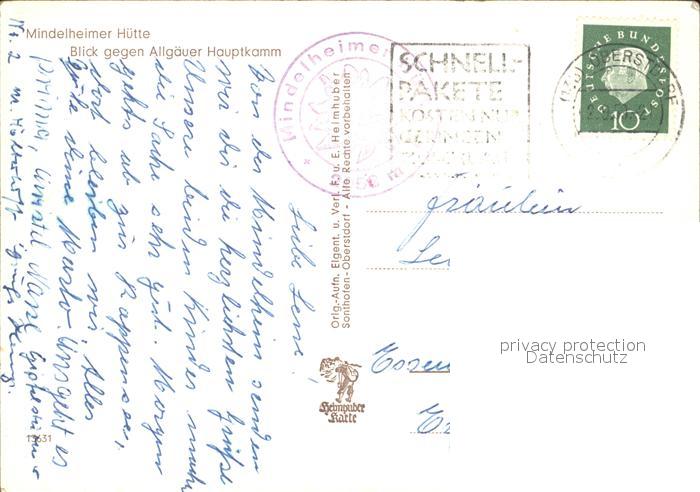 Mindelheimer Hütte
Blick gegen Allgäuer Hauptkamm
Liebe Lene!
Von der Mindelheim senden
wir dir die herzlichsten Grüße
Unsere beiden Kinder machen
die Sache sehr gut. Morgen
gehts ab zur Rappensee,
dort bleiben wir. Alles
Gute deine Marta. Uns geht es
prima,
Nr. 2
13631
Orig.-Aufn. Eigent. u. Verl. F. u. E. Heimhuber
Sonthofen-Oberstdorf - Alle Rechte vorbehalten
Heimhuber
Karte
Mindelheimer
SCHNELL-
PAKETE
KOSTEN NUR
DEUTSCHE BUNDESPOST
10
OBERSTDORF
Fräulein
Essen
privacy protection
Datenschutz